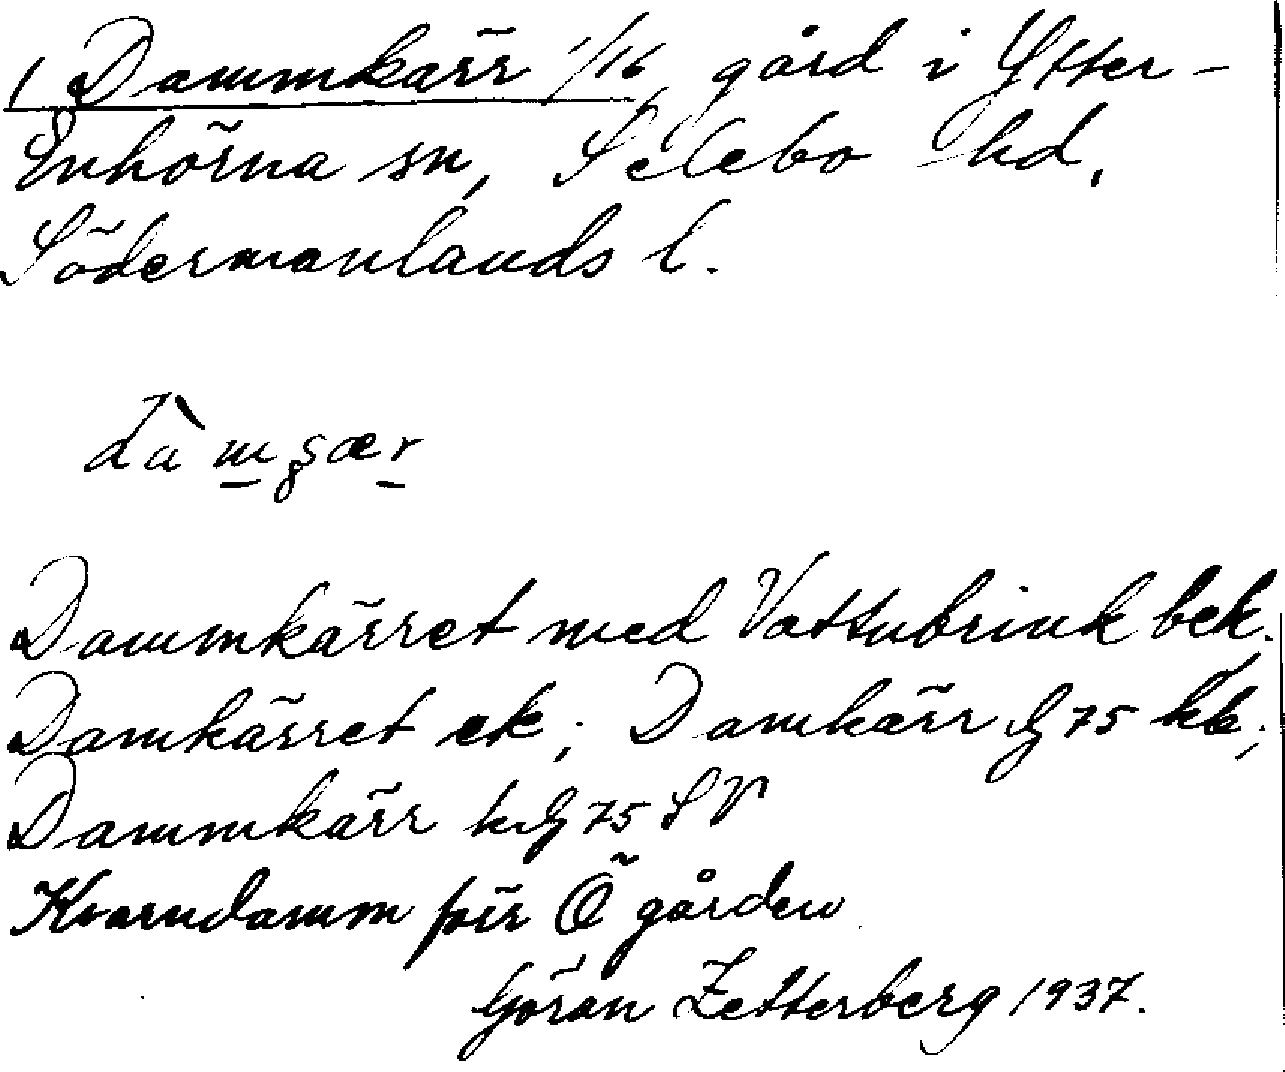 1 Dammkärr 1/16 gård i Ytter-
Enhörna sn, Selebo hd.
Södermanlands l.
dàmçær
Dammkärret med Vattubrink bek.
Damkärret ek; Damkärr Hg 75 kb;
Dammkärr hdg 75 SV
Kvarndamm för Ö gården
Göran Zetterberg 1937.